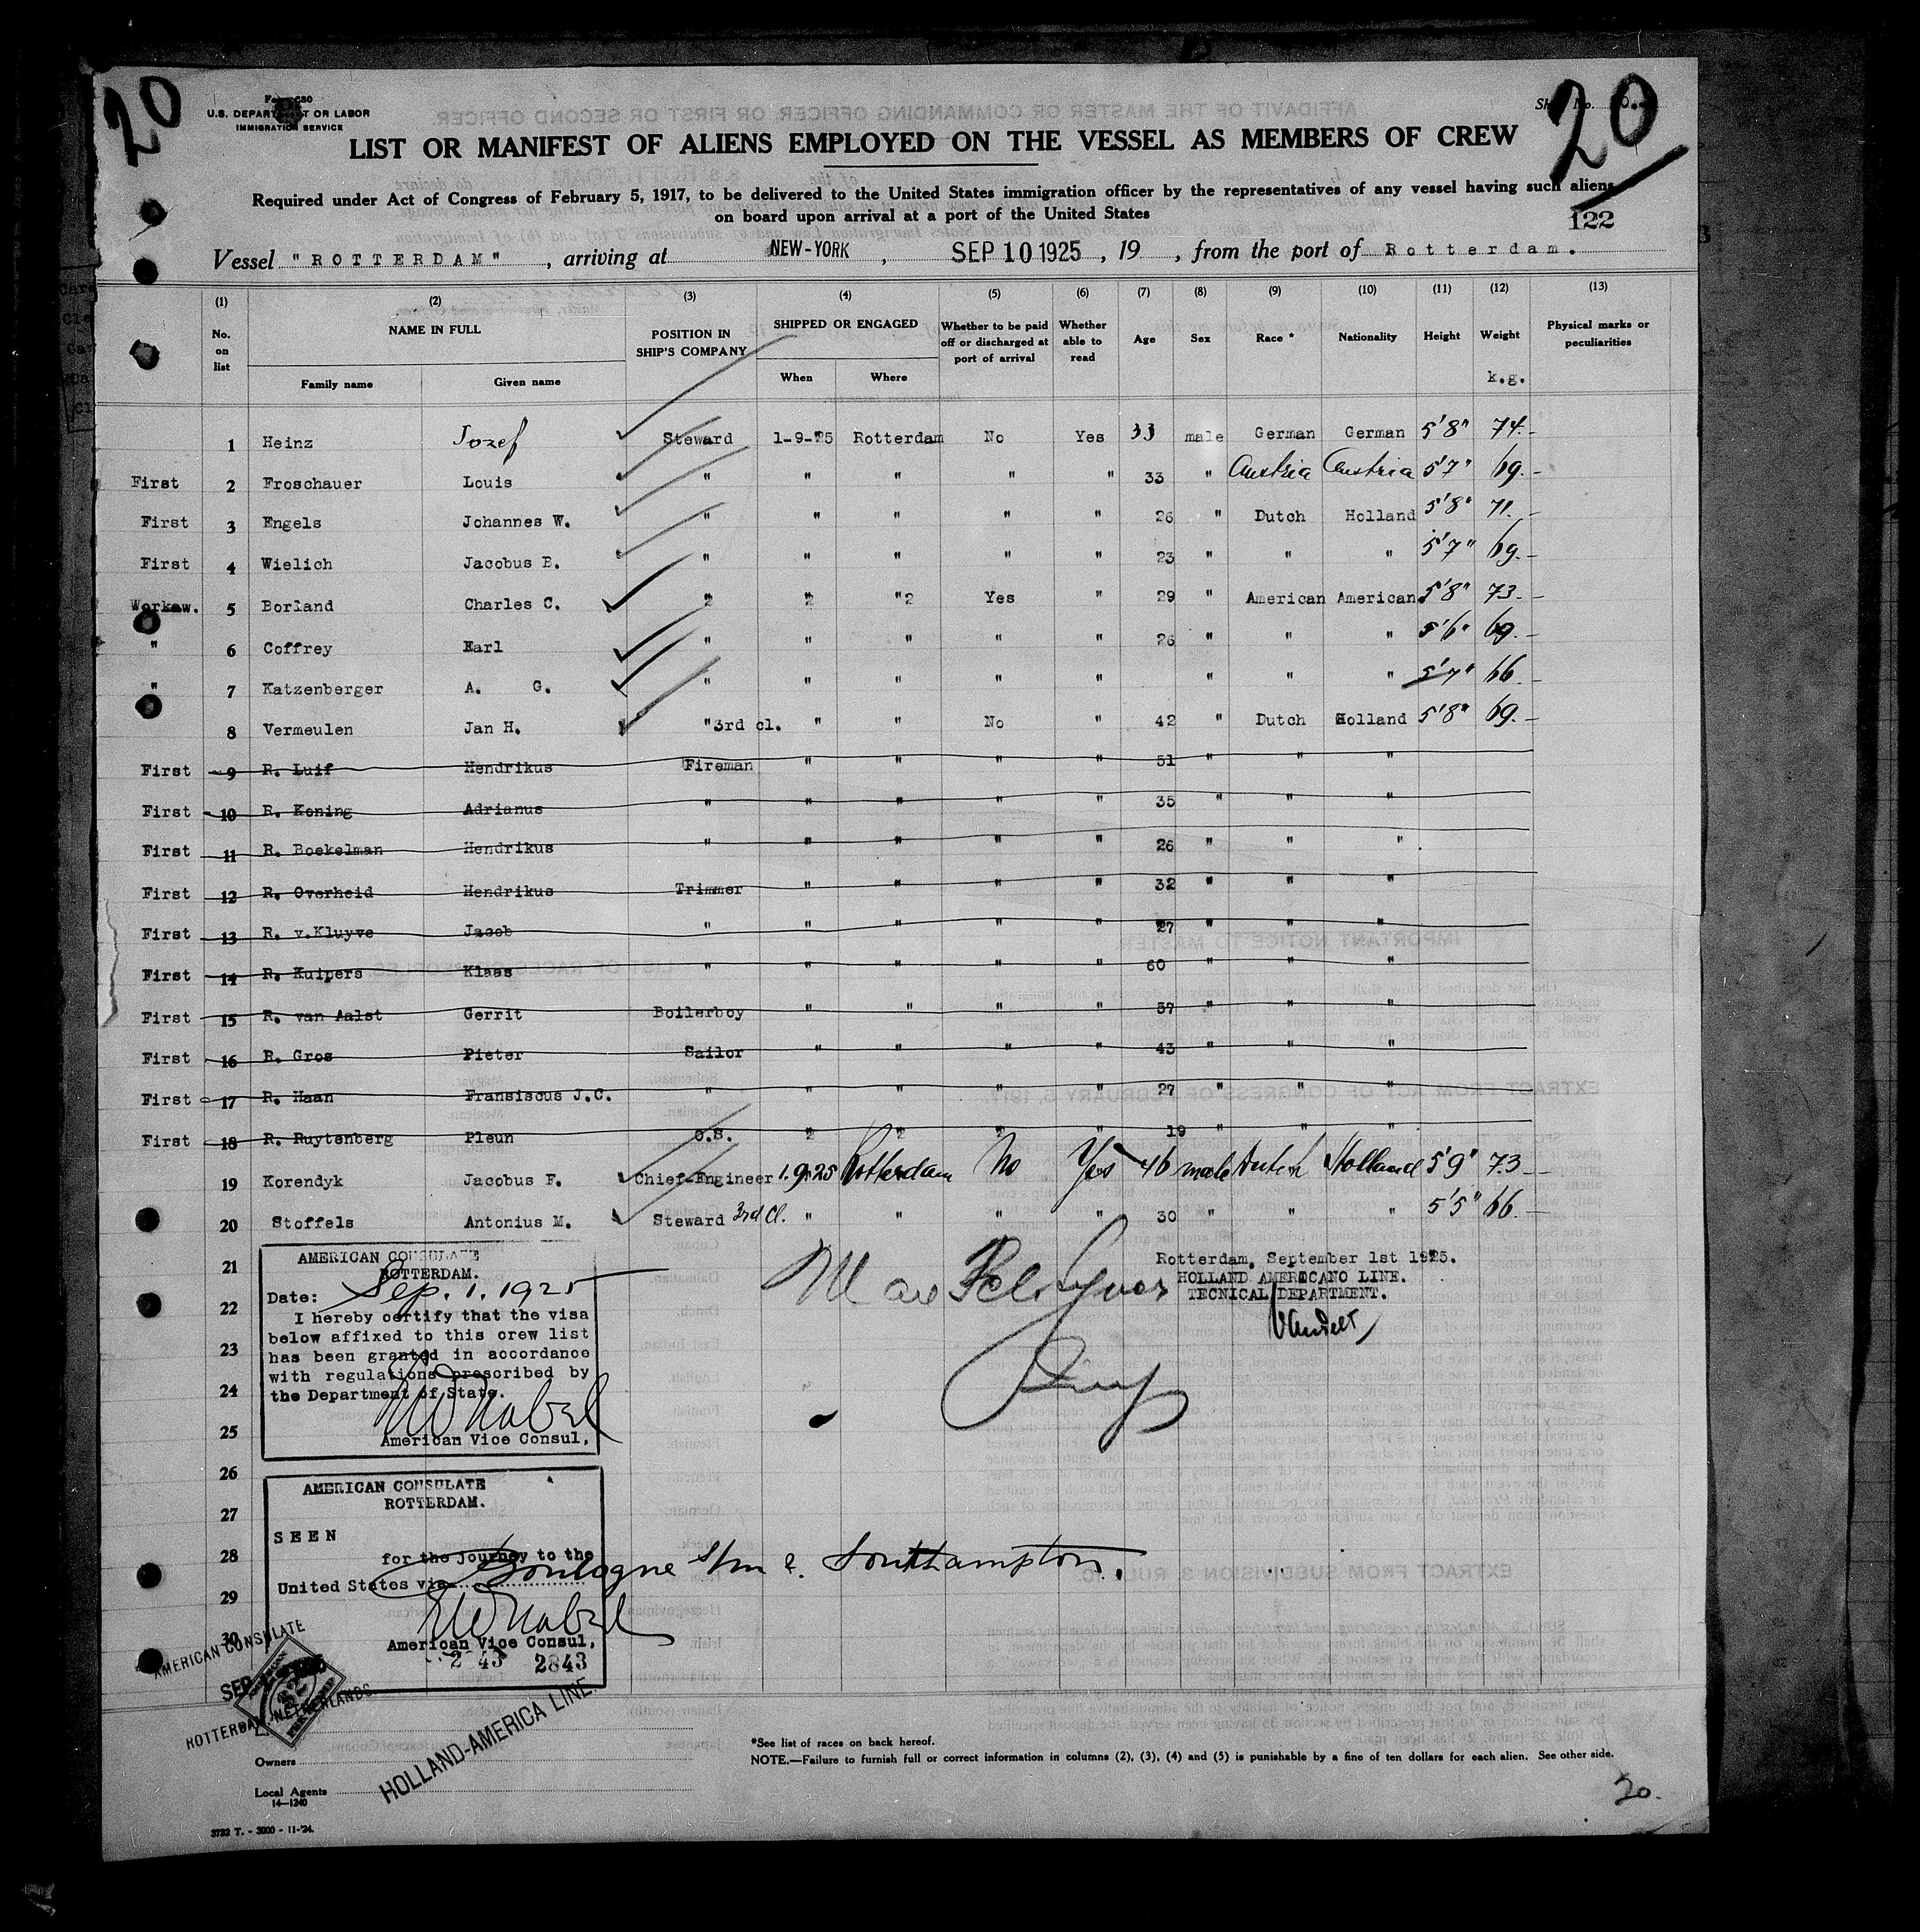 20
20
Form 680
U.S. DEPARTMENT OR LABOR
IMMIGRATION SERVICE
LIST OR MANIFEST OF ALIENS EMPLOYED ON THE VESSEL AS MEMBERS OF CREW
Required under Act of Congress of February 5, 1917, to be delivered to the United States immigration officer by the representatives of any vessel having such aliens
on board upon arrival at a port of the United States
122
Vessel "ROTTERDAM", arriving at NEW-YORK, SEP 10 1925, 19 , from the port of Rotterdam.
(1) (2) (3) (4) (5) (6) (7) (8) (9) (10) (11) (12) (13)
No. on list NAME IN FULL POSITION IN SHIP'S COMPANY SHIPPED OR ENGAGED Whether to be paid off or discharged at port of arrival Whether able to read Age Sex Race * Nationality Height Weight Physical marks or peculiarities
Family name Given name When Where k.g.
1 Heinz Jozef Steward 1-9-25 Rotterdam No Yes 33 male German German 5'8" 74.-
First 2 Froschauer Louis " " " " " 33 " Austria Austria 5'7" 69.-
First 3 Engels Johannes W. " " " " " 26 " Dutch Holland 5'8" 71.-
First 4 Wielich Jacobus B. " " " " " 23 " " " 5'7" 69.-
Workaw. 5 Borland Charles C. 2 2 "2 Yes " 29 " American American 5'8" 73.-
" 6 Coffrey Earl " " " " " 26 " " " 5'6" 69.-
" 7 Katzenberger A. G. " " " " " " " " 5'7" 66.-
8 Vermeulen Jan H. "3rd cl. " " No " 42 " Dutch Holland 5'8" 69.-
First 9 R. Luif Hendrikus Fireman " " " " 51 " " "
First 10 R. Koning Adrianus " " " " " 35 " " "
First 11 R. Boekelman Hendrikus " " " " " 26 " " "
First 12 R. Overheid Hendrikus Trimmer " " " " 32 " " "
First 13 R. v.Kluyve Jacob " " " " " 27 " " "
First 14 R. Kuipers Klaas " " " " " 60 " " "
First 15 R. van Aalst Gerrit Boilerboy " " " " 57 " " "
First 16 R. Gros Pieter Sailor " " " " 43 " " "
First 17 R. Haan Fransiscus J.C. " " " " " 27 " " "
First 18 R. Ruytenberg Pleun O.S. 2 2 2 " 19 " " "
19 Korendyk Jacobus F. Chief-Engineer 1.9.25 Rotterdam No Yes 46 male Dutch Holland 5'9" 73.-
20 Stoffels Antonius M. Steward 3rd Cl. " " " " 30 " " " 5'5" 66.-
21
22
23
24
25
26
27
28
29
30
AMERICAN CONSULATE
ROTTERDAM.
Date: Sep. 1. 1925
I hereby certify that the visa
below affixed to this crew list
has been granted in accordance
with regulations prescribed by
the Department of State.
American Vice Consul,
Rotterdam, September 1st 1925.
HOLLAND AMERICANO LINE.
TECNICAL DEPARTMENT.
AMERICAN CONSULATE
ROTTERDAM.
SEEN
for the Journey to the
United States via Boulogne s/m e. Southampton.
American Vice Consul,
2 43 2843
AMERICAN CONSULATE
SEP
ROTTERDAM-NETHERLANDS
HOLLAND-AMERICA LINE.
Owners
Local Agents
14—1240
3732 T. - 3000 - 11-'24.
*See list of races on back hereof.
NOTE.—Failure to furnish full or correct information in columns (2), (3), (4) and (5) is punishable by a fine of ten dollars for each alien. See other side.
20.